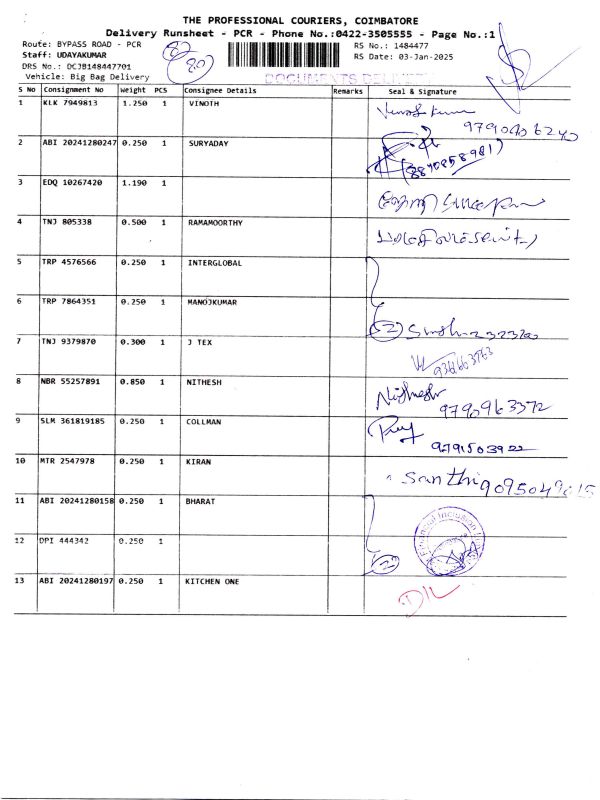 THE PROFESSIONAL COURIERS, COIMBATORE
Delivery Runsheet - PCR - Phone No.:0422-3505555 - Page No.:1
Route: BYPASS ROAD - PCR RS No.: 1484477
Staff: UDAYAKUMAR RS Date: 03-Jan-2025
DRS No.: DCJB148447701
Vehicle: Big Bag Delivery
S No Consignment No Weight PCS Consignee Details Remarks Seal & Signature
1 KLK 7949813 1.250 1 VINOTH
2 ABI 20241280247 0.250 1 SURYADAY
(8870858981)
3 EDQ 10267420 1.190 1
4 TNJ 805338 0.500 1 RAMAMOORTHY
5 TRP 4576566 0.250 1 INTERGLOBAL
6 TRP 7864351 0.250 1 MANOJKUMAR
7 TNJ 9379870 0.300 1 J TEX
8 NBR 55257891 0.850 1 NITHESH Nithesh
9790963372
9 SLM 361819185 0.250 1 COLLMAN
9791503922
10 MTR 2547978 0.250 1 KIRAN
Santhi
11 ABI 20241280158 0.250 1 BHARAT
Financial Inclusion
12 DPI 444342 0.250 1
13 ABI 20241280197 0.250 1 KITCHEN ONE
D/L